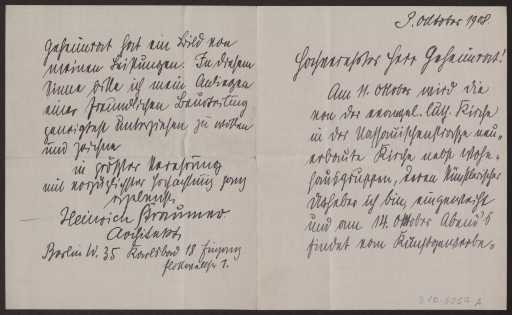 3. Oktober 1908.
Hochverehrter Herr Geheimrat!
Am 11. Oktober wird die
von der evangel. luth. Kirche
in der Nassauischenstrasse neu-
erbaute Kirche nebst Wohn-
hausgruppen, deren künstlerischer
Urheber ich bin, eingeweiht
und am 14. Oktober Abend 8
findet vom Kunstgewerbe-
Geheimrat hat ein Bild von
meinen Leistungen. In diesem
Sinne bitte ich mein Anliegen
einer freundlichen Beurteilung
geneigtest unterziehen zu wollen
und zeichne
in größter Verehrung
mit vorzüglichster Hochachtung ganz
ergebenst
Heinrich Straumer
Architekt.
Berlin W. 35 Karlsbad 18 Eingang
1.